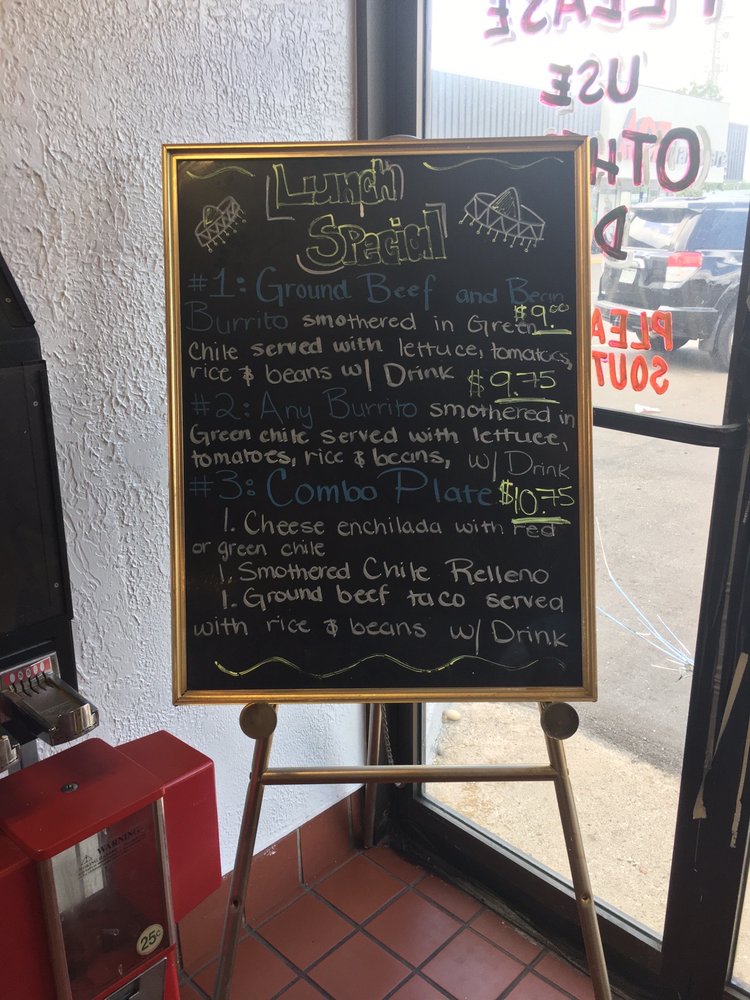 Lunch
Special
#1: Ground Beef and Bean
$9.00
Burrito smothered in Green
Chile served with lettuce, tomatoes,
rice & beans w/ Drink
$9.75
#2: Any Burrito smothered in
Green chile served with lettuce,
tomatoes, rice & beans, w/ Drink
#3: Combo Plate $10.75
1. Cheese enchilada with red
or green chile
1. Smothered Chile Relleno
1. Ground beef taco served
with rice & beans w/ Drink
PLEASE
USE
OTH
D
PLEA
SOUT
WARNING
25¢